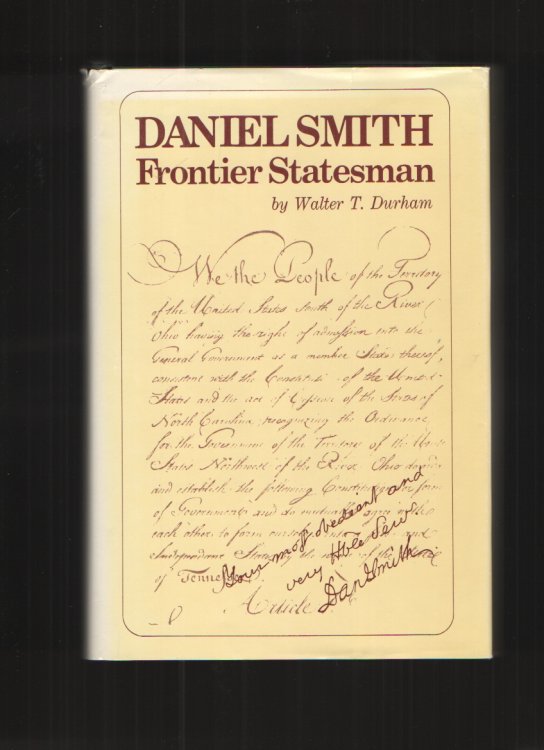 DANIEL SMITH
Frontier Statesman
by Walter T. Durham
We the People of the Territory
of the United States South of the River
Ohio having the right of admission into the
General Government as a member State thereof,
consistent with the Constituti- of the United
States and the act of Cession of the State of
North Carolina, recognizing the Ordinance
for the Government of the Territory of the
States Northwest of the River Ohio
and establish the following Constitution form
of Government and do mutually agree
each other to form
Independent State by the of the
of Tennessee
Your most obedient and
very Hble Serv
Danl Smith
Article